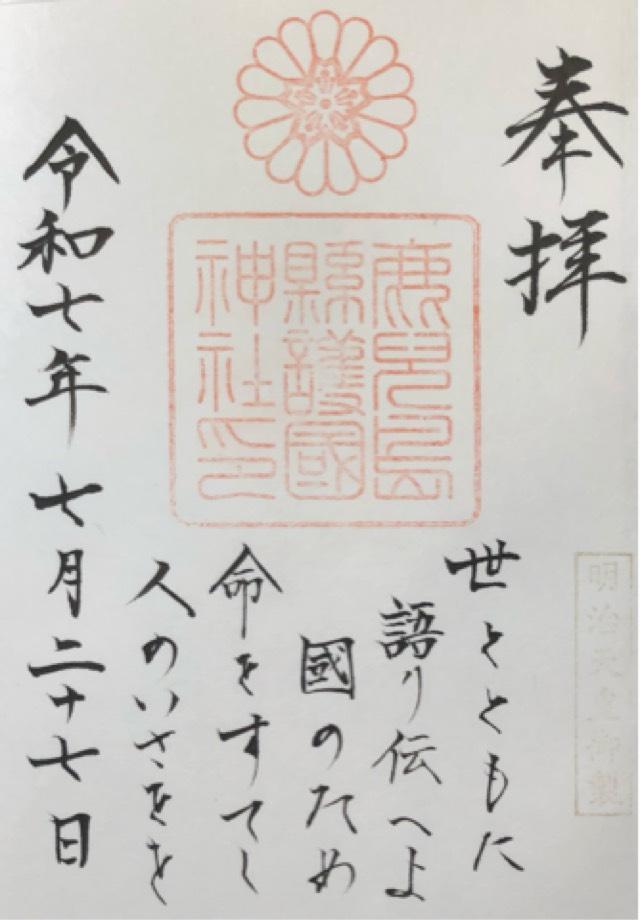 奉拝
鹿兒島
縣護國
神社印
明治天皇御製
世とともに
語り伝へよ
國のため
命をすてし
人のいさをを
令和七年七月二十七日